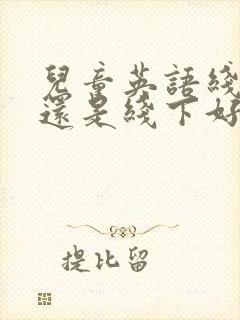 兒童英語綫
還是綫下好
提比留